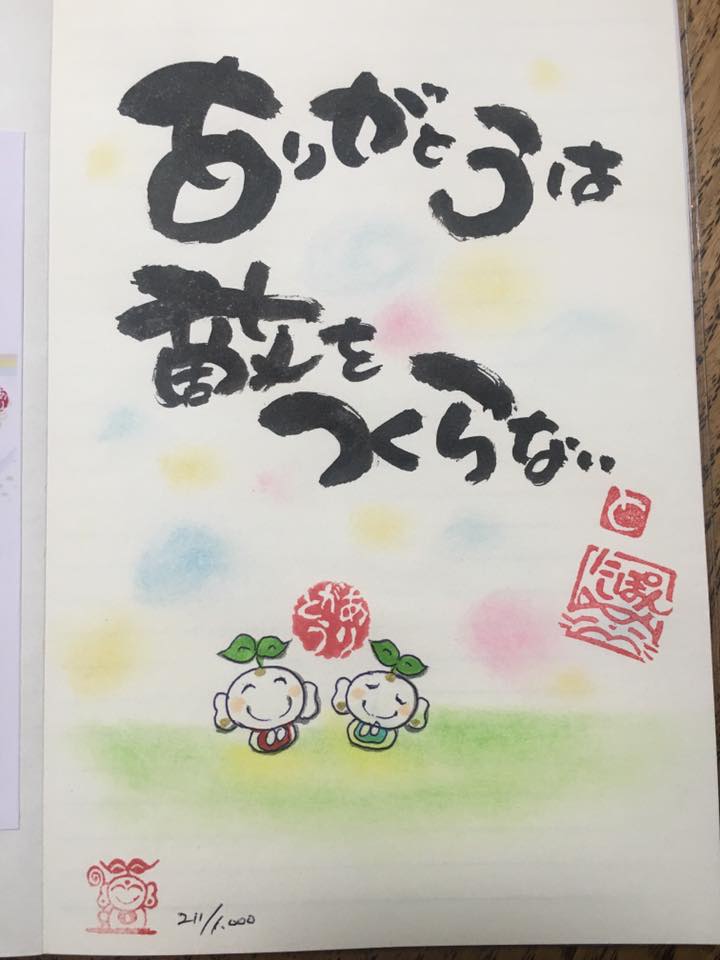 ありがとうは
敵を
つくらない
と
にっぽん
ありがとう
211/1.000